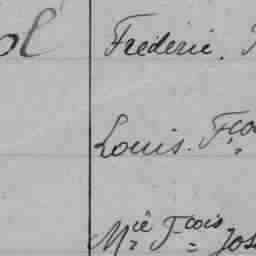 Fréderic.
Louis. Fço
Mie Fçois Jos